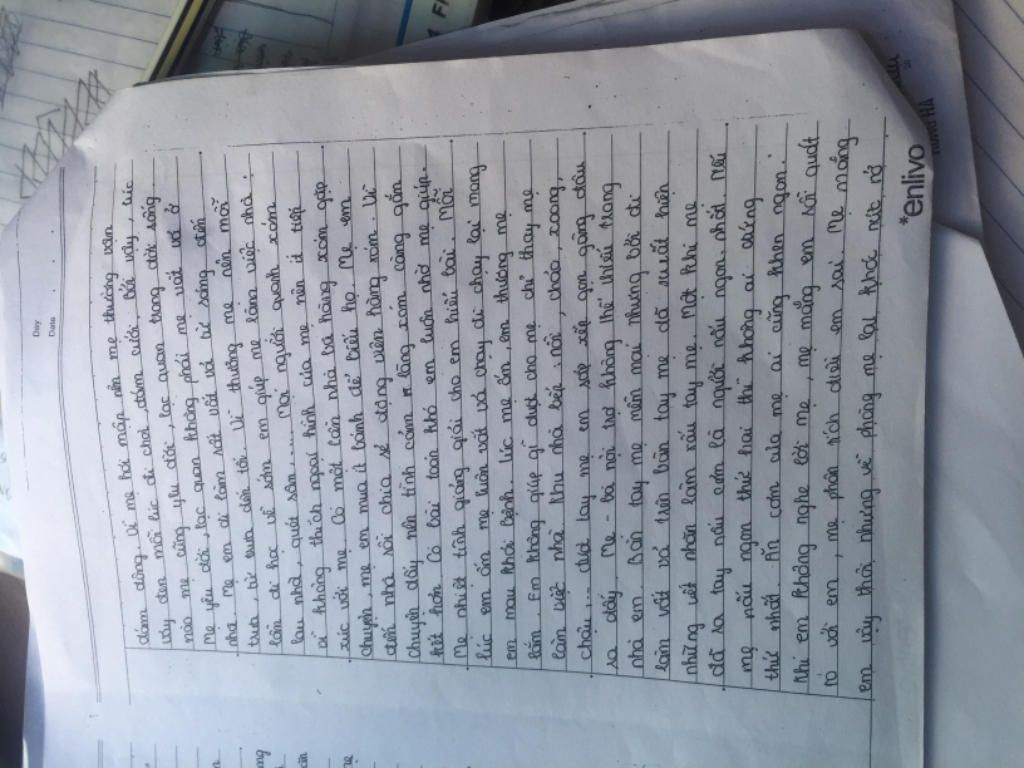 Day
Date
dám đông. Vì mẹ hơi mập nên mẹ thường vận
váy đen mỗi lúc đi chơi, đám cưới. Bởi vậy, lúc
nào mẹ cũng yêu đời, lạc quan trong đời sống
Mẹ yêu đời, lạc quan không phải mẹ vất vả ở
nhà. Mẹ em đi làm rất vất vả từ sáng đến
trưa, từ trưa đến tối. Vì thương mẹ nên mỗi
lần đi học về sớm em giúp mẹ làm việc nhà:
lau nhà, quét sân..... Mọi người quanh xóm
ai không thích ngoại hình của mẹ nên ít tiếp
xúc với mẹ. Có một lần nhà bà hàng xóm gặp
chuyện, mẹ em mua ít bánh để biếu họ. Mẹ em
đến nhà rồi chia sẻ động viên hàng xóm. Từ
chuyện đấy nên tình cảm hàng xóm càng gắn
kết hơn. Có bài toán khó em luôn nhờ mẹ giúp.
Mẹ nhiệt tình giảng giải cho em hiểu bài. Mỗi
lúc em ốm mẹ luôn vất vả chạy đi chạy lại mong
em mau khỏi bệnh. Lúc mẹ ốm, em thương mẹ
lắm. Em không giúp gì được cho mẹ, chỉ thay mẹ
làm việc nhà. Khu nhà bếp, nồi, chảo xoong,
chậu,... dưới tay mẹ em sắp xếp gọn gàng đâu
ra đấy. Mẹ - bà nội trợ không thể thiếu trong
nhà em. Bàn tay mẹ mềm mại nhưng bởi đi
làm vất vả trên bàn tay mẹ đã xuất hiện
những vết nhăn làm xấu tay mẹ. Một khi mẹ
đã ra tay nấu cơm là người nấu ngon nhất. Nếu
mẹ nấu ngon thứ hai thì không ai đứng
thứ nhất. Ăn cơm của mẹ ai cũng khen ngon.
Khi em không nghe lời mẹ, mẹ mắng em rồi quát
rõ với em, mẹ phân tích dưới em sai. Mẹ mắng
em vậy thôi nhưng về phòng mẹ lại khóc nức nở
*enlivo